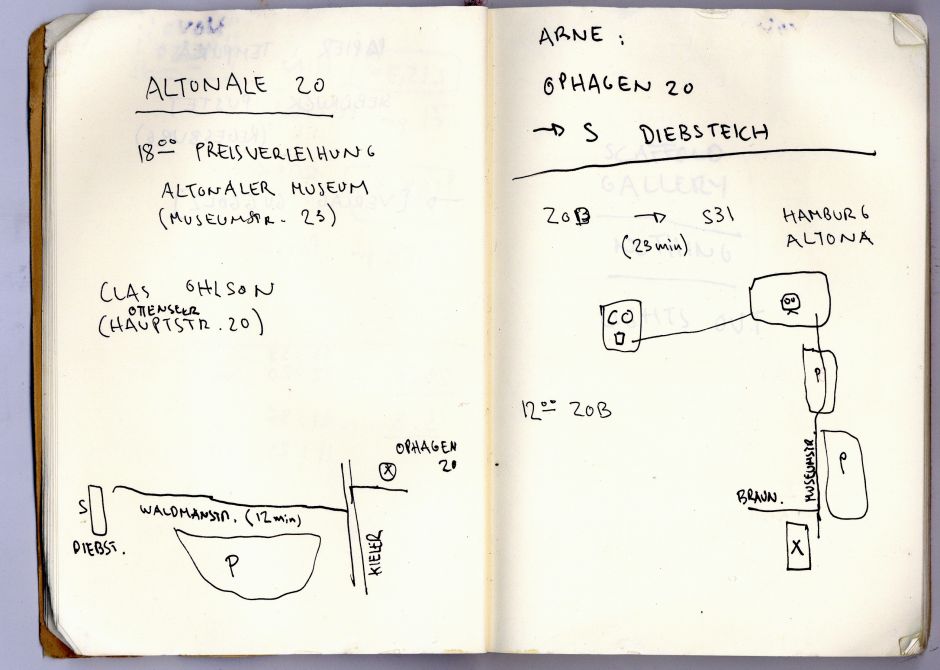 ALTONALE 20
18⁰⁰ PREISVERLEIHUNG
ALTONALER MUSEUM
(MUSEUMSTR. 23)
CLAS OHLSON
OTTENSEER
(HAUPTSTR. 20)
OPHAGEN
20
X
S
DIEBST.
WALDMANSTR. (12min)
P
KIELER
ARNE :
OPHAGEN 20
→ S DIEBSTEICH
ZOB → S31 HAMBURG
(23min) ALTONA
CO
P
12⁰⁰ ZOB
MUSEUMSTR.
P
BRAUN.
X